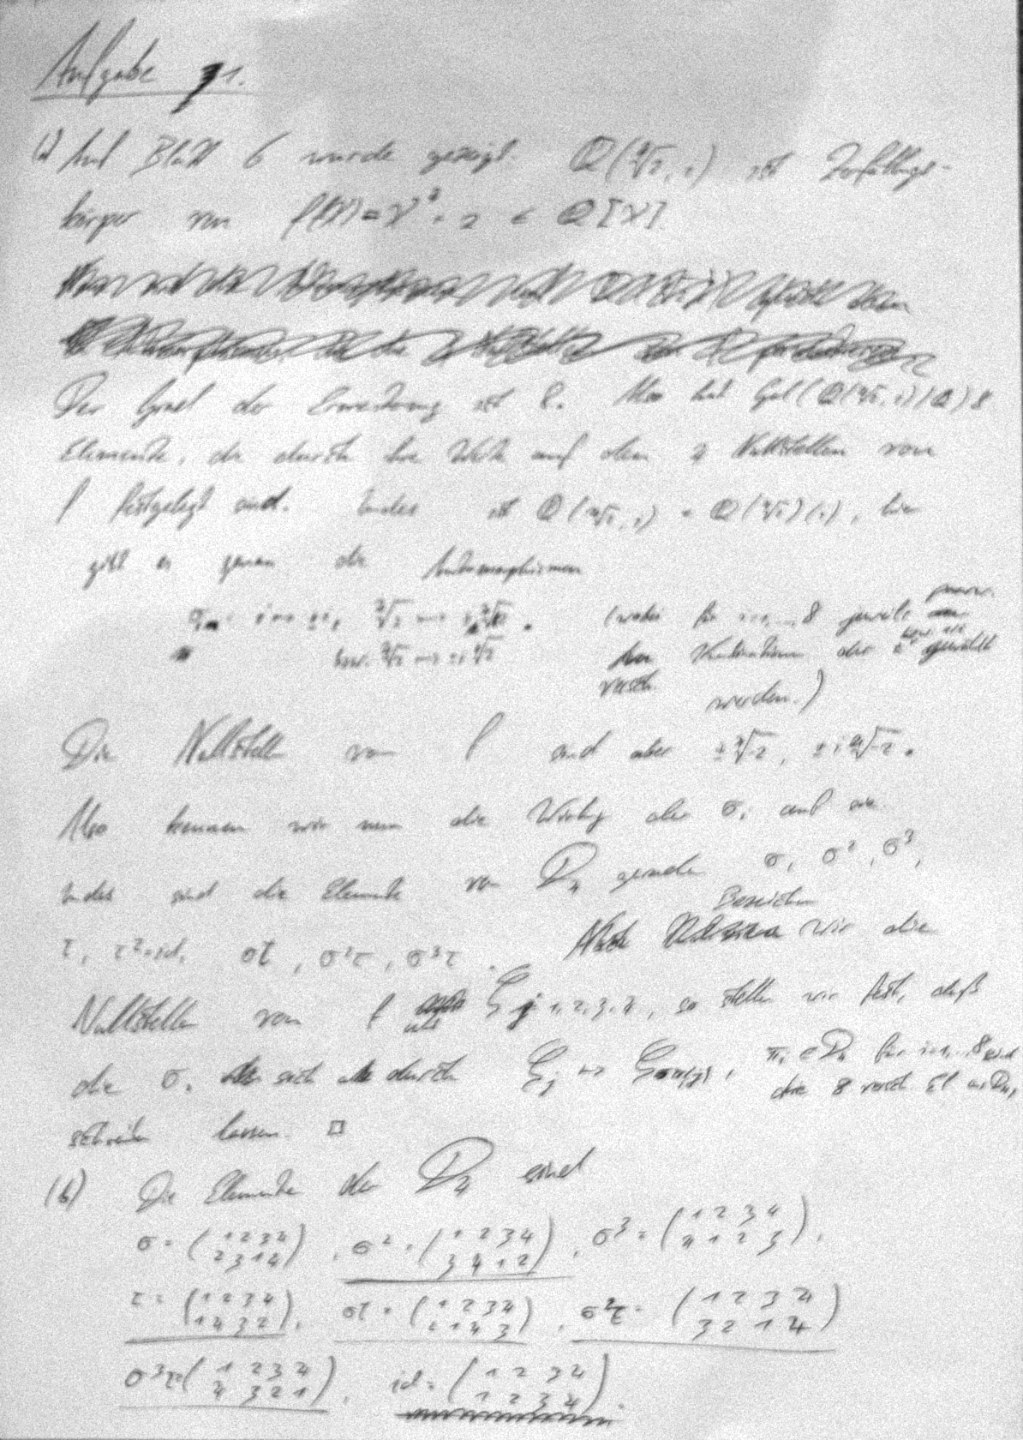 Aufgabe 1.
(a) Auf Blatt 6 wurde gezeigt: Q(∜2, i) ist Zerfällungs-
körper von f(X) = X⁴ - 2 ∈ Q[X].
Der Grad der Erweiterung ist 8. Also hat Gal(Q(∜2, i)/Q) 8
Elemente, die durch ihre Werte auf den 4 Nullstellen von
f festgelegt sind. Indes ist Q(∜2, i) = Q(∜2)(i), hier
gibt es genau die Automorphismen
i ↦ ±i, ∜2 ↦ ±∜2.
bzw. ∜2 ↦ ±i∜2
(wobei für i=1,...,8 jeweils
Kombination der gewählt
versch. werden.)
Die Nullstellen von f sind aber ±∜2, ±i∜2.
Also kennen wir nun die Wirkung der σᵢ auf
Indes sind die Elemente von D₄ gerade σ, σ², σ³,
τ, τ²=id, στ, σ²τ, σ³τ. Bezeichnen wir die
Nullstellen von f als ξj 1,2,3,4, so stellen wir fest, daß
die σᵢ sich durch ξj ↦ , πᵢ ∈ D₄ für i=1,...,8 sind
die 8 versch. El. in D₄,
schreiben lassen. □
(b) Die Elemente der D₄ sind
σ = (1 2 3 4 / 2 3 1 4), σ² = (1 2 3 4 / 3 4 1 2), σ³ = (1 2 3 4 / 4 1 2 3),
τ = (1 2 3 4 / 1 4 3 2), στ = (1 2 3 4 / 2 1 4 3), σ²τ = (1 2 3 4 / 3 2 1 4)
σ³τ = (1 2 3 4 / 4 3 2 1), id = (1 2 3 4 / 1 2 3 4).